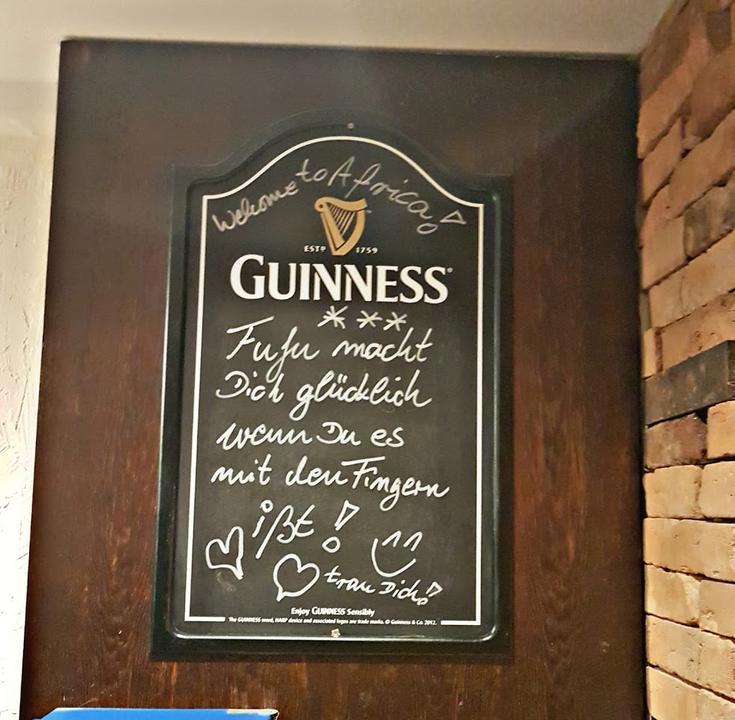 Welcome to Africa!
ESTD 1759
GUINNESS
***
Fufu macht
Dich glücklich
wenn Du es
mit den Fingern
ißt!
trau Dich!
Enjoy GUINNESS Sensibly
The GUINNESS word, HARP device and associated logos are trade marks. © Guinness & Co. 2012.